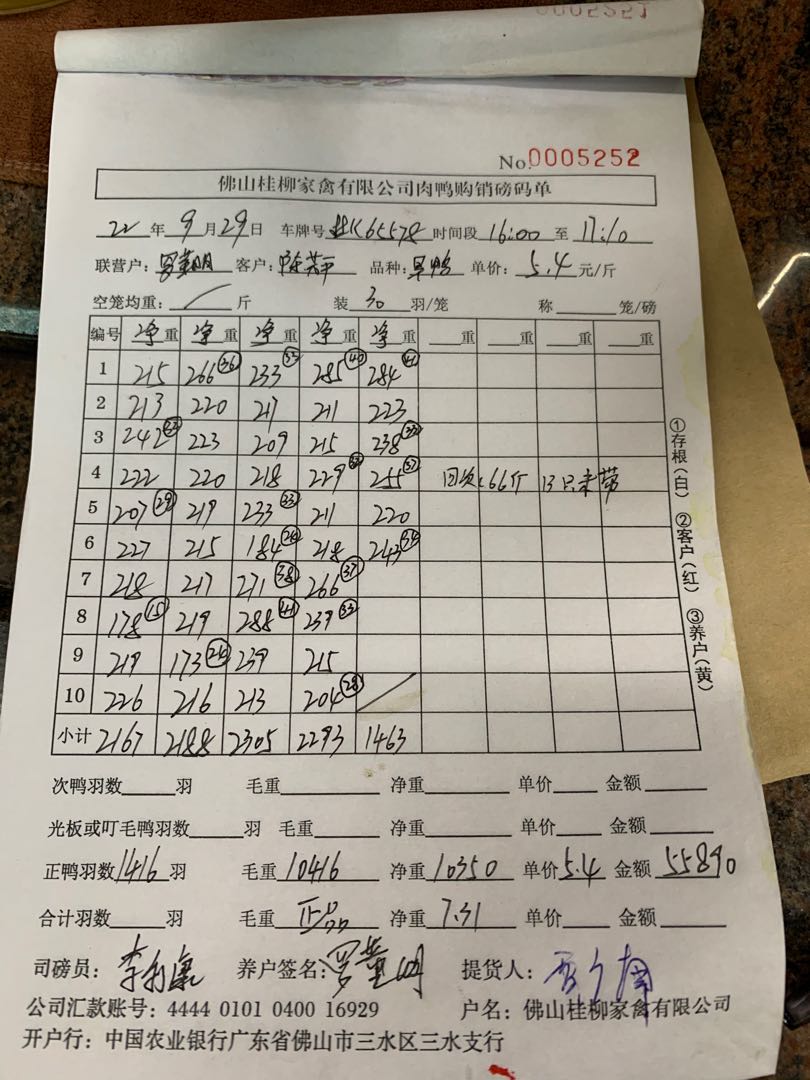 0005251
No.0005252
佛山桂柳家禽有限公司肉鸭购销磅码单
22 年 9 月 29 日 车牌号 65578 时间段 16:00 至 17:10
联营户: 客户: 品种: 鸭 单价: 5.4 元/斤
空笼均重: / 斤 装 30 羽/笼 称 笼/磅
编号 净重 净重 净重 净重 净重 重 重 重 重
1 215 266(36) 233(33) 285(40) 284(41)
2 213 220 217 211 223
3 242(33) 223 209 215 238(33)
4 222 220 218 229 255(37) 回次:66斤 13只未带
5 207(29) 219 233(33) 211 220
6 227 215 184(26) 218 243(34)
7 218 217 271(38) 266(37)
8 178(15) 219 288(41) 239(33)
9 219 173(26) 239 215
10 226 216 213 204(28) /
小计 2167 2188 2305 2293 1463
①存根(白) ②客户(红) ③养户(黄)
次鸭羽数 羽 毛重 净重 单价 金额
光板或叮毛鸭羽数 羽 毛重 净重 单价 金额
正鸭羽数 1416 羽 毛重 10416 净重 10350 单价 5.4 金额 55890
合计羽数 羽 毛重 正品 净重 7.31 单价 金额
司磅员: 养户签名: 提货人:
公司汇款账号: 4444 0101 0400 16929 户名: 佛山桂柳家禽有限公司
开户行: 中国农业银行广东省佛山市三水区三水支行